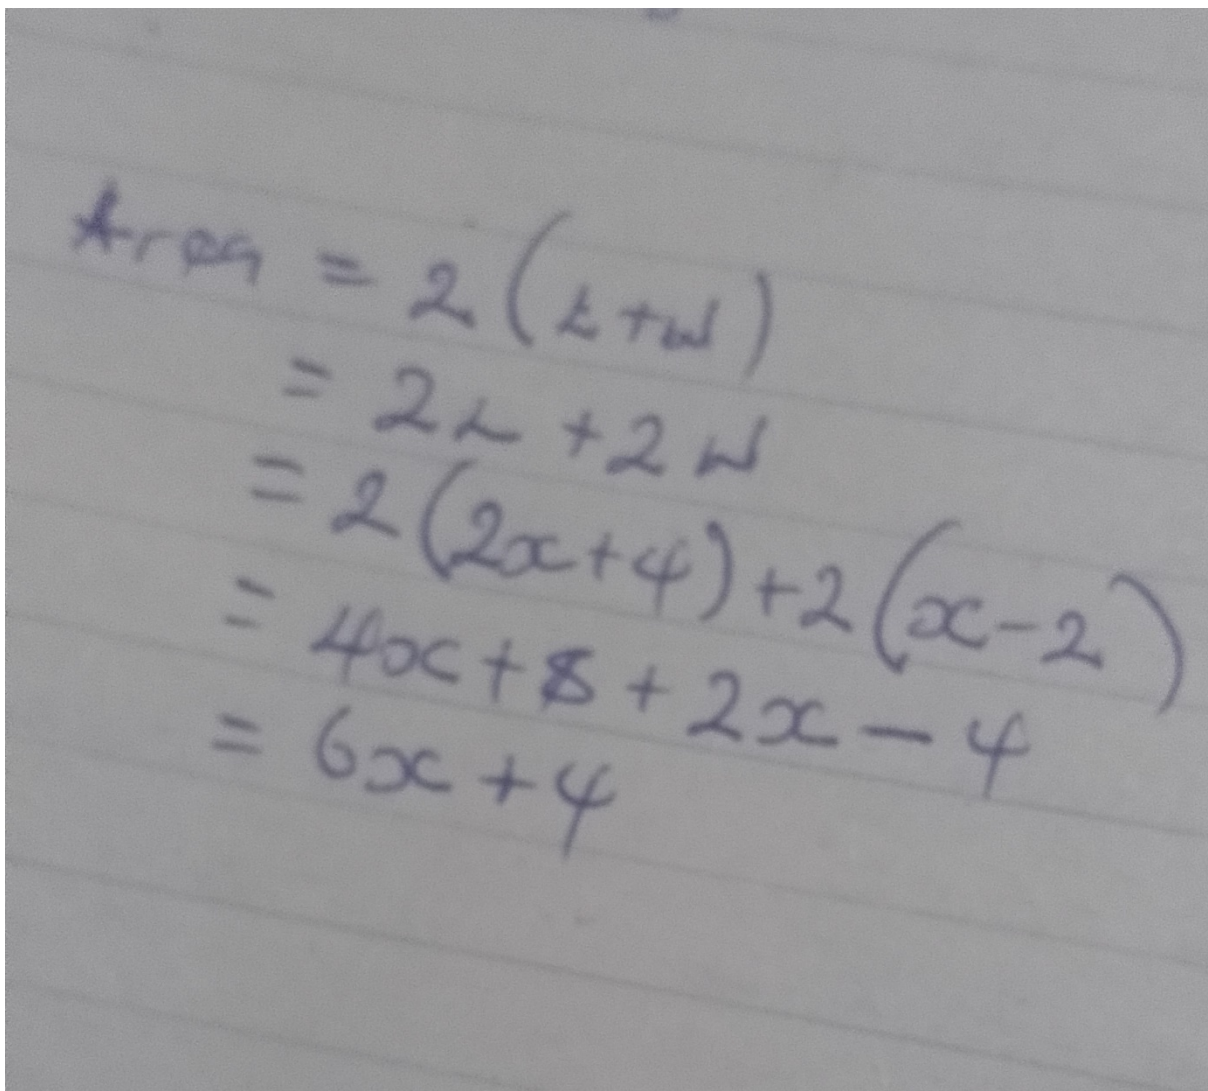 Area = 2(L+W)
= 2L + 2W
= 2(2x+4) + 2(x-2)
= 4x + 8 + 2x - 4
= 6x + 4